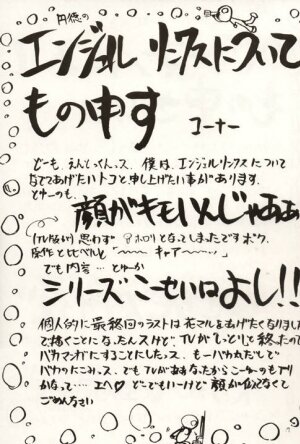 円徳の
エンジェル リンクスについて
もの申す コーナー
どーも、えんじっくんっス、僕は、エンジェルリンクスについて
なでてあげたいトコと申し上げたい事があります、
とゆーのも、
顔がキモいんじゃあぁ
(TV版が) 思わず ホロリとなってしまったですボク、
原作と比べると「〜〜〜 キャアー〜〜…」
でも内容…とゆーか
シリーズこーせいはよし!!
個人的に最終回のラストは花マルをあげたくなりました
で描くことになったんスけど、TVがしっとりと終ったので
バカマンガにすることにしたっス、も一バカ丸だしで
バカのにこみっス、でもTVがああなったからこーゆーのもアリ
かなって…エヘ どーでもいーけど 顔が似てなくて
ごめんなさい